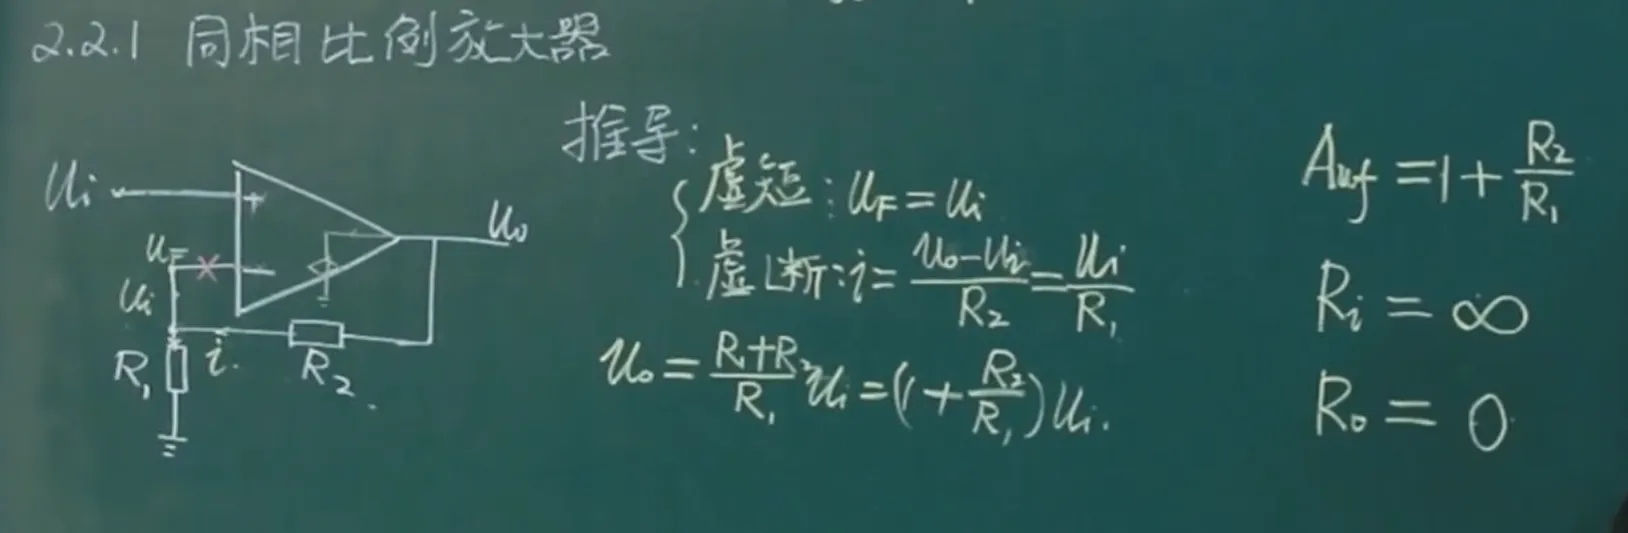 2.2.1 同相比例放大器
推导:
虚短: u_F = u_i
虚断: i = (u_o - u_i)/R_2 = u_i/R_1
u_o = (R_1+R_2)/R_1 u_i = (1 + R_2/R_1) u_i.
A_uf = 1 + R_2/R_1
R_i = ∞
R_o = 0
u_i
+
u_o
u_F
−
u_i
R_1
i.
R_2